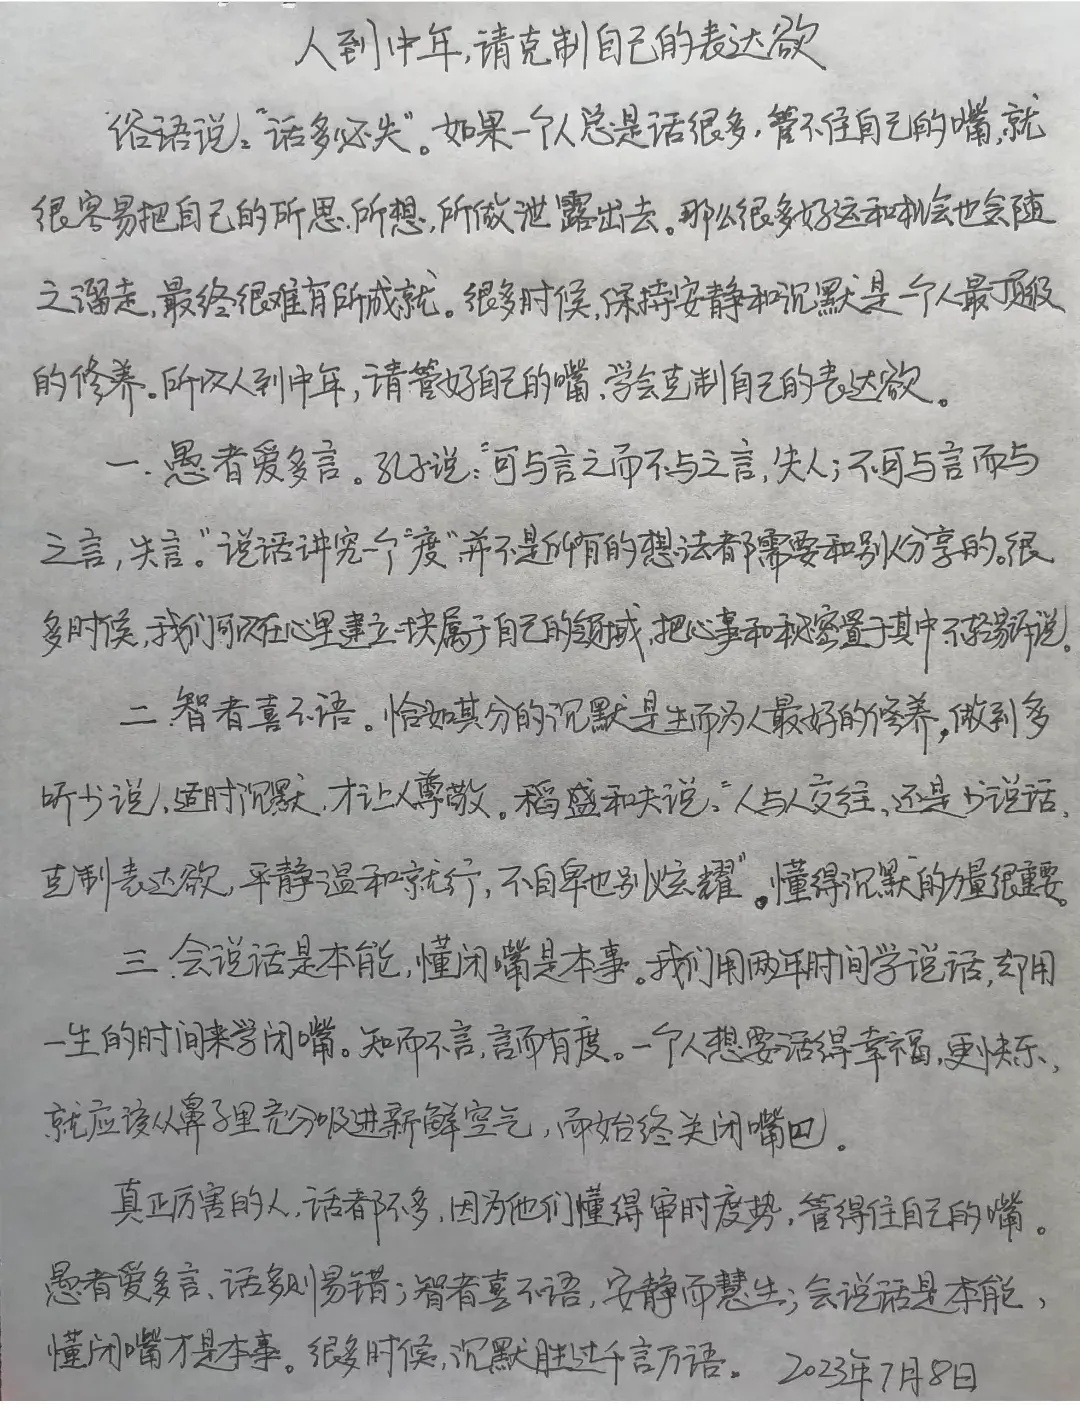 人到中年,请克制自己的表达欲
俗语说:“话多必失”。如果一个人总是话很多,管不住自己的嘴,就
很容易把自己的所思、所想,所做泄露出去。那么很多好运和机会也会随
之溜走,最终很难有所成就。很多时候,保持安静和沉默是一个人最顶级
的修养。所以人到中年,请管好自己的嘴、学会克制自己的表达欲。
一.愚者爱多言。孔子说:“可与言之而不与之言,失人;不可与言而与
之言,失言。”说话讲究一个“度”,并不是所有的想法都需要和别人分享的。很
多时候,我们可以在心里建立一块属于自己的领域,把心事和秘密置于其中不轻易诉说。
二.智者喜不语。恰如其分的沉默是生而为人最好的修养,做到多
听少说,适时沉默,才让人尊敬。稻盛和夫说:“人与人交往、还是少说话,
克制表达欲,平静温和就行,不自卑也别炫耀”。懂得沉默的力量很重要。
三.会说话是本能,懂闭嘴是本事。我们用两年时间学说话,却用
一生的时间来学闭嘴。知而不言,言而有度。一个人想要活得幸福,更快乐,
就应该从鼻子里充分吸进新鲜空气,而始终关闭嘴巴.
真正厉害的人,话都不多,因为他们懂得审时度势,管得住自己的嘴。
愚者爱多言、话多则易错;智者喜不语,安静而慧生;会说话是本能,
懂闭嘴才是本事。很多时候,沉默胜过千言万语。 2023年7月8日